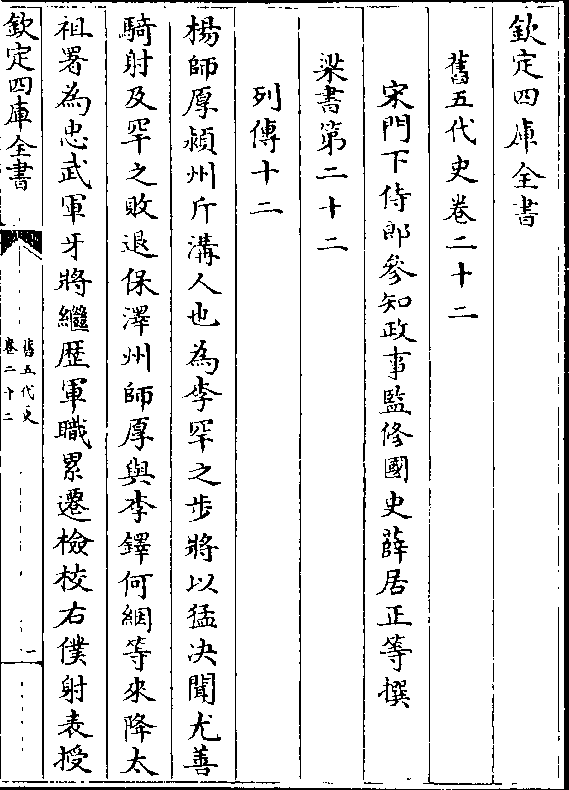 欽定四庫全書
舊五代史卷二十二
宋門下侍郎參知政事監修國史薛居正等撰
梁書第二十二
列傳十二
楊師厚潁州斤溝人也為李罕之步將以猛决聞尤善
騎射及罕之敗退保澤州師厚與李鐸何絪等來降太
祖署為忠武軍牙將繼歴軍職累遷檢校右僕射表授
欽定四庫全書
舊五代史
卷二十二
一